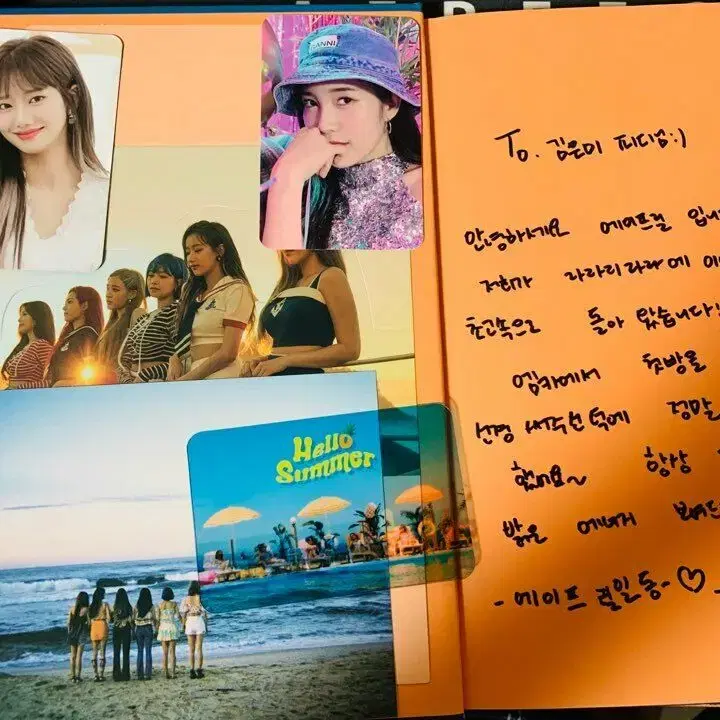 GANNI
Hello
Summer
To. 김은미 피디님:)
안녕하세요 에이프릴 입니
저희가 라라리라라에 이
초고속으로 돌아 왔습니다!
엠카에서 첫방을
신경 써주신 덕에 정말
했어요~ 항상
밝은 에너지
-에이프릴일동-♡